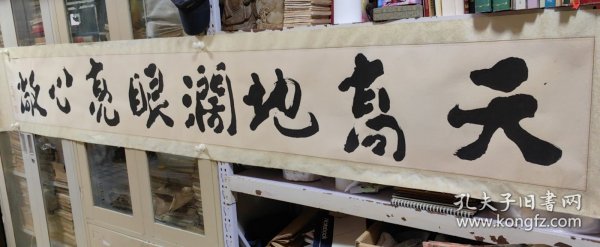 天高地濶眼亮心敞
孔夫子旧书网
www.kongfz.com